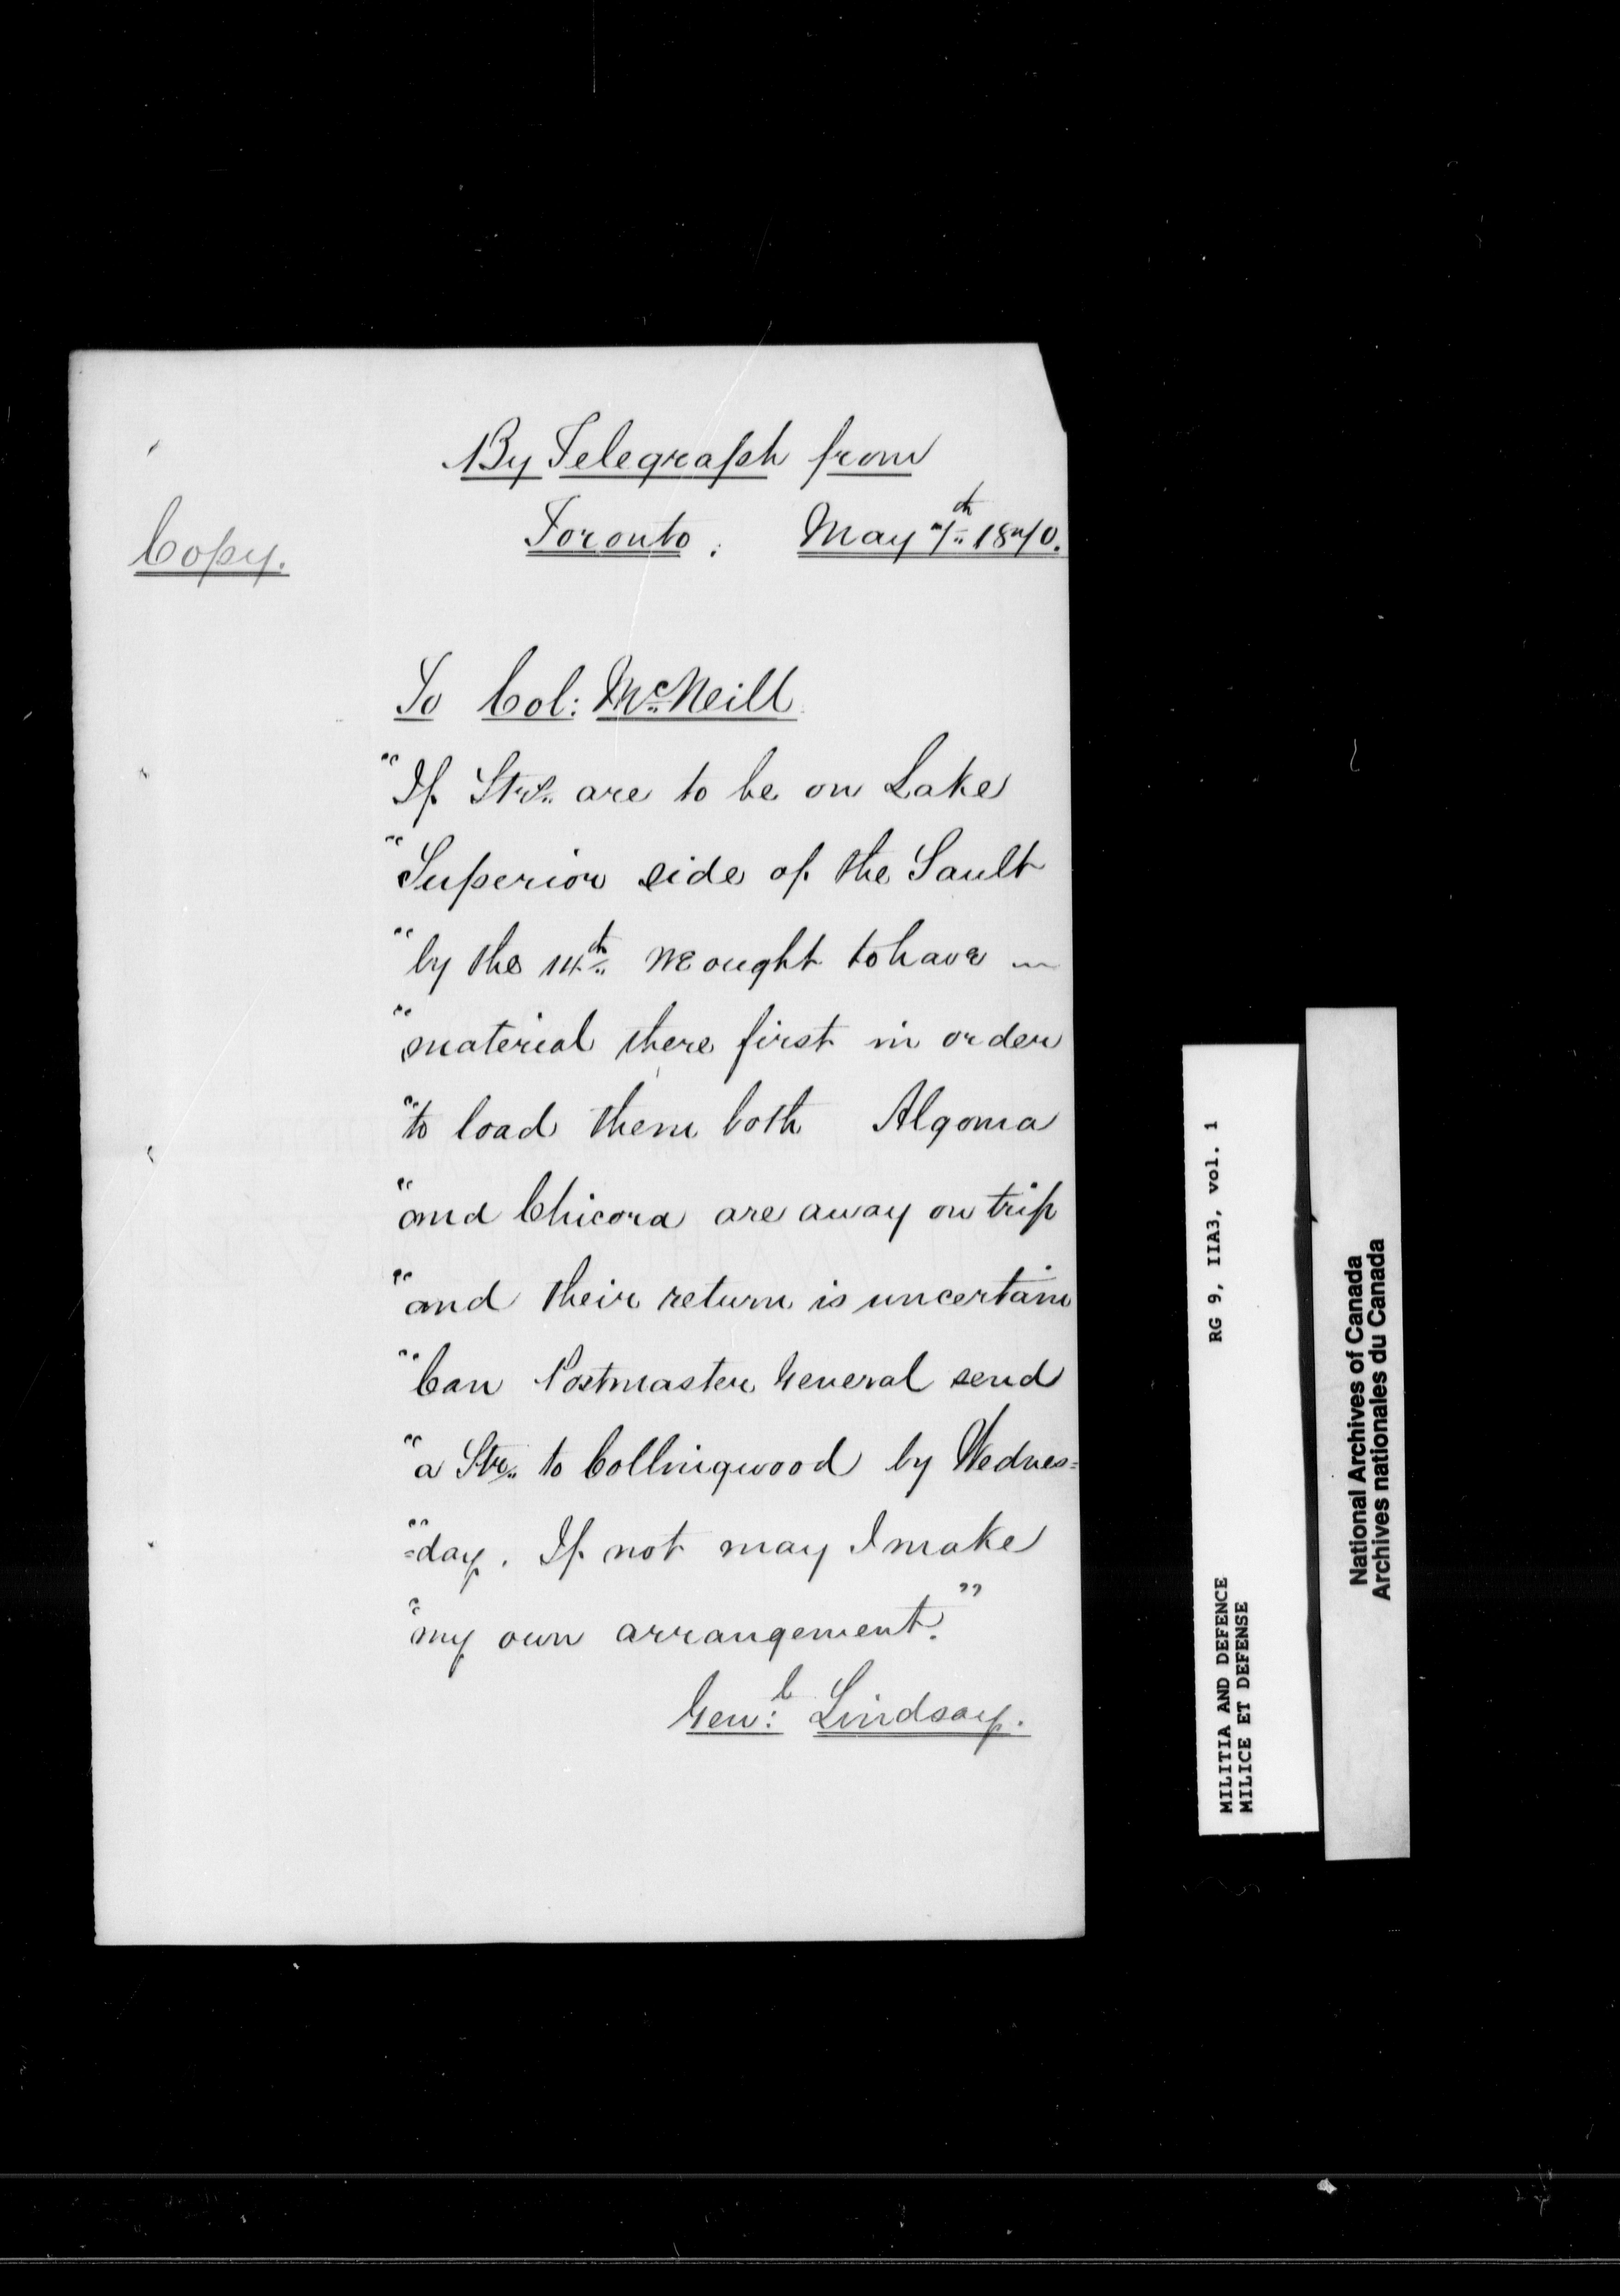 By Telegraph from
Toronto. May 7th 1870.
Copy.
To Col: McNeill
"If Strs. are to be on Lake
"Superior side of the Sault
"by the 14th we ought to have
"material there first in order
"to load them both Algoma
"and Chicora are away on trip
"and their return is uncertain
"Can Postmaster General send
"a Str. to Collingwood by Wednes=
"=day. If not may I make
"my own arrangement."
Genl: Lindsay.
RG 9, IIA3, vol. 1
MILITIA AND DEFENCE
MILICE ET DEFENSE
National Archives of Canada
Archives nationales du Canada